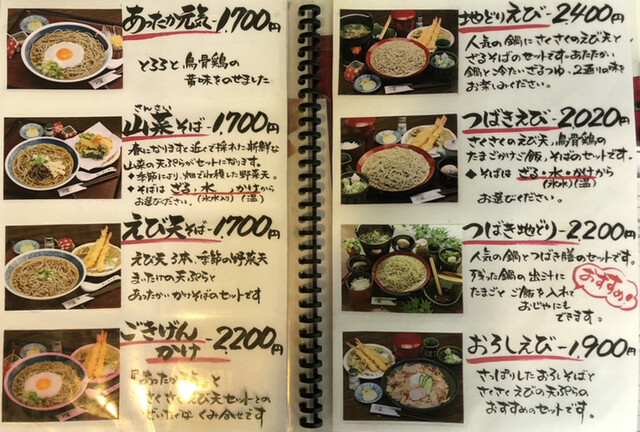 あったか元気-1,700円
とろろと烏骨鶏の
黄味をのせました
さんさい
山菜そば-1,700円
春になりますと近くで採れた新鮮な
山菜の天ぷらがセットになります。
◆季節により、畑で収穫した野菜天。
◆そばは ざる・水・かけから
(氷水入り)(温)
お選びください。
えび天そば-1,700円
えび天3本、季節の野菜天
まいたけの天ぷらと
あったかいかけそばのセットです
ごきげん
かけ-2,200円
『あったか元気』と
さくさくえび天セットとの
ぜいたくな くみ合せです
地どりえび-2,400円
人気の鍋にさくさくのえび天と
ざるそばのセットです。あたたかい
鍋と冷たいざるつゆ、2通りの味を
お楽しみください。
つばきえび-2,020円
さくさくのえび天、烏骨鶏の
たまごかけご飯、そばのセットです。
◆そばは ざる・水・かけから
(氷水)(温)
お選びください。
つばき地どり-2,200円
人気の鍋とつばき膳のセットです。
残った鍋の出汁に
たまごとご飯を入れて
おじやにも
できます。
おすすめ!
おろしえび-1,900円
さっぱりしたおろしそばと
さくさくえびの天ぷらの
おすすめのセットです。